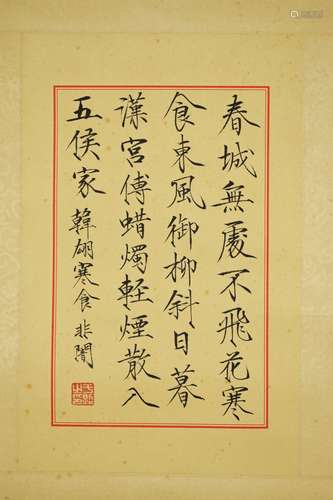 春城無處不飛花寒
食東風御柳斜日暮
漢宮傳蜡燭軽煙散入
五侯家 韓翃寒食 非闇